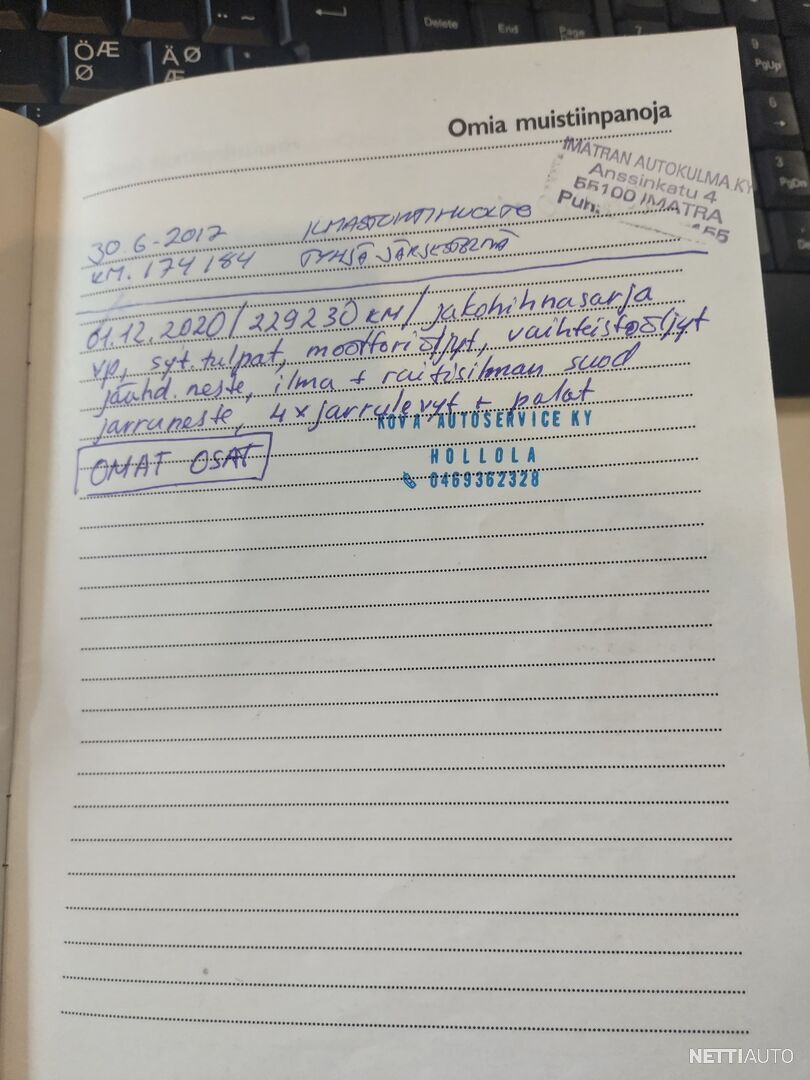 Delete
End
Page
7
ÖÆ
Ø
ÄØ
Æ
9
PgUp
6
→
3
PgDn
Omia muistiinpanoja
IMATRAN AUTOKULMA KY
Anssinkatu 4
55100 IMATRA
Puh. 455
30 6-2017 ILMASTOINTIHUOLTO
KM. 174184 TYHJÄ JÄRJESTELMÄ
01.12.2020/229230 KM/ jakohihnasarja
vp, syt.tulpat, moottoriöljyt, vaihteistoöljyt
jäähd.neste, ilma + raitisilman suod
jarruneste, 4x jarrulevyt + palat
KOVA AUTOSERVICE KY
OMAT OSAT
HOLLOLA
0469362328
NETTIAUTO